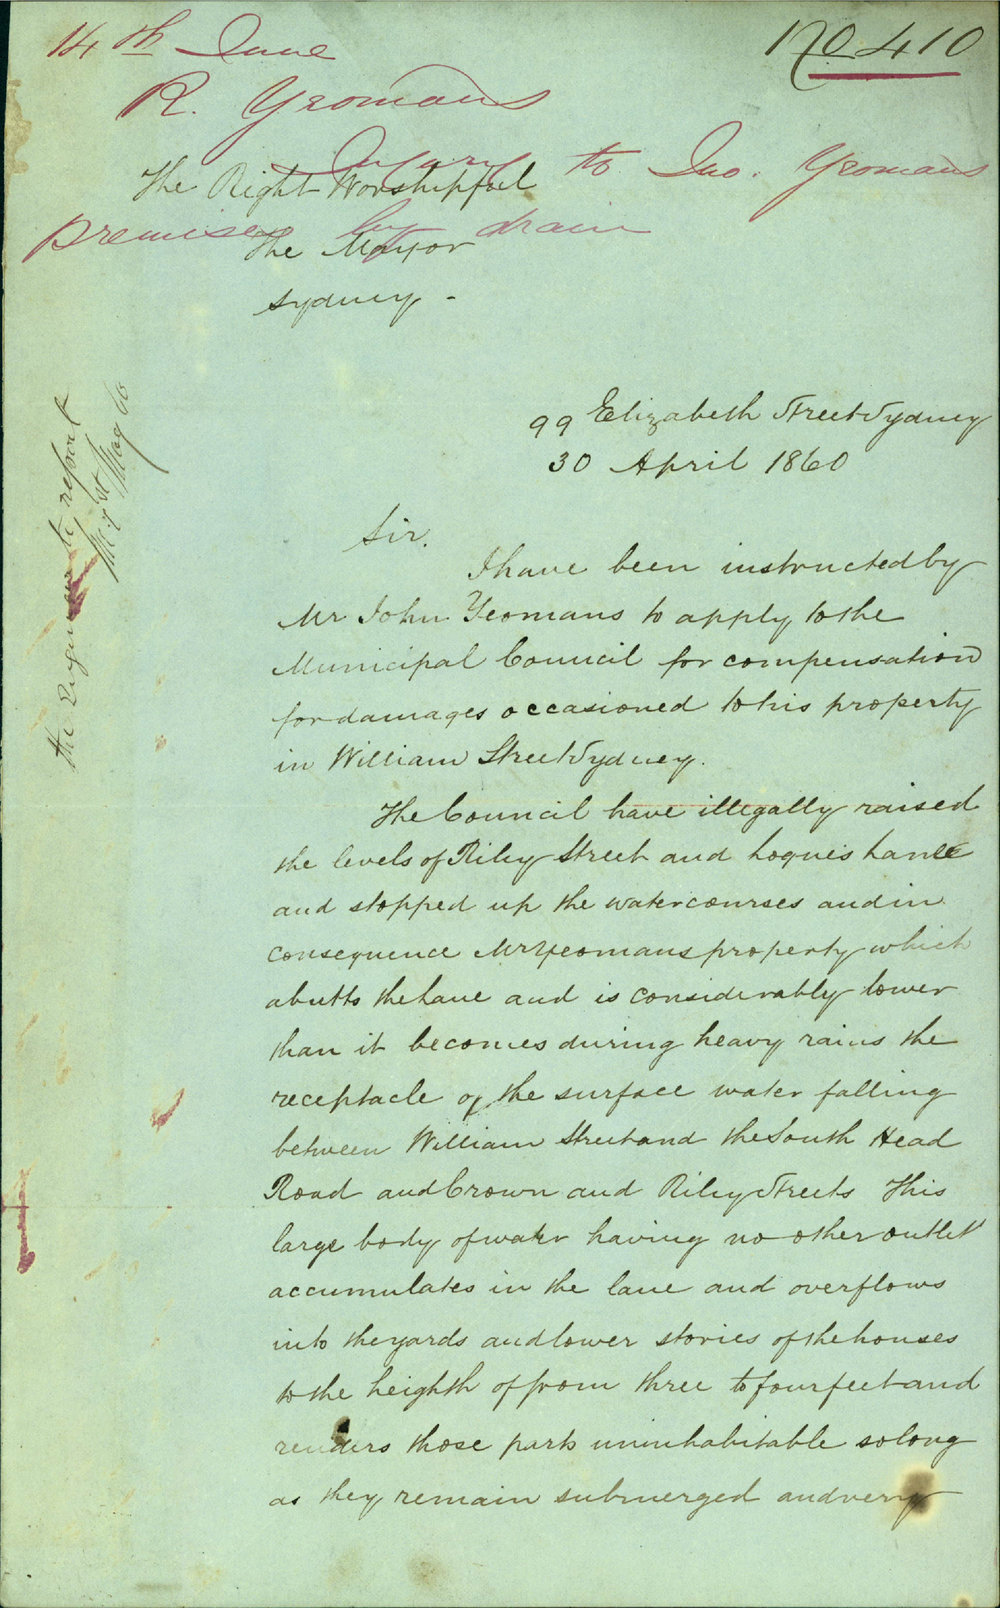 No 410
14th June
R. Yeomans
Injury to Jno. Yeomans
premises by drain
The Right Worshipful
The Mayor
Sydney -
99 Elizabeth Street Sydney
30 April 1860
Sir.
I have been instructed by
Mr John Yeomans to apply to the
Municipal Council for compensation
for damages occasioned to his property
in William Street Sydney.
The Council have illegally raised
the levels of Riley Street and hogue's Lane
and stopped up the watercourses and in
consequence Mr Yeomans property which
abutts the lane and is considerably lower
than it becomes during heavy rains the
receptacle of the surface water falling
between William Street and the South Head
Road and Crown and Riley Streets This
large body of water having no other outlet
accumulates in the lane and overflows
into the yards and lower stories of the houses
to the heighth of from three to four feet and
renders those parts uninhabitable so long
as they remain submerged and very
The Engineer to report
1st May 60